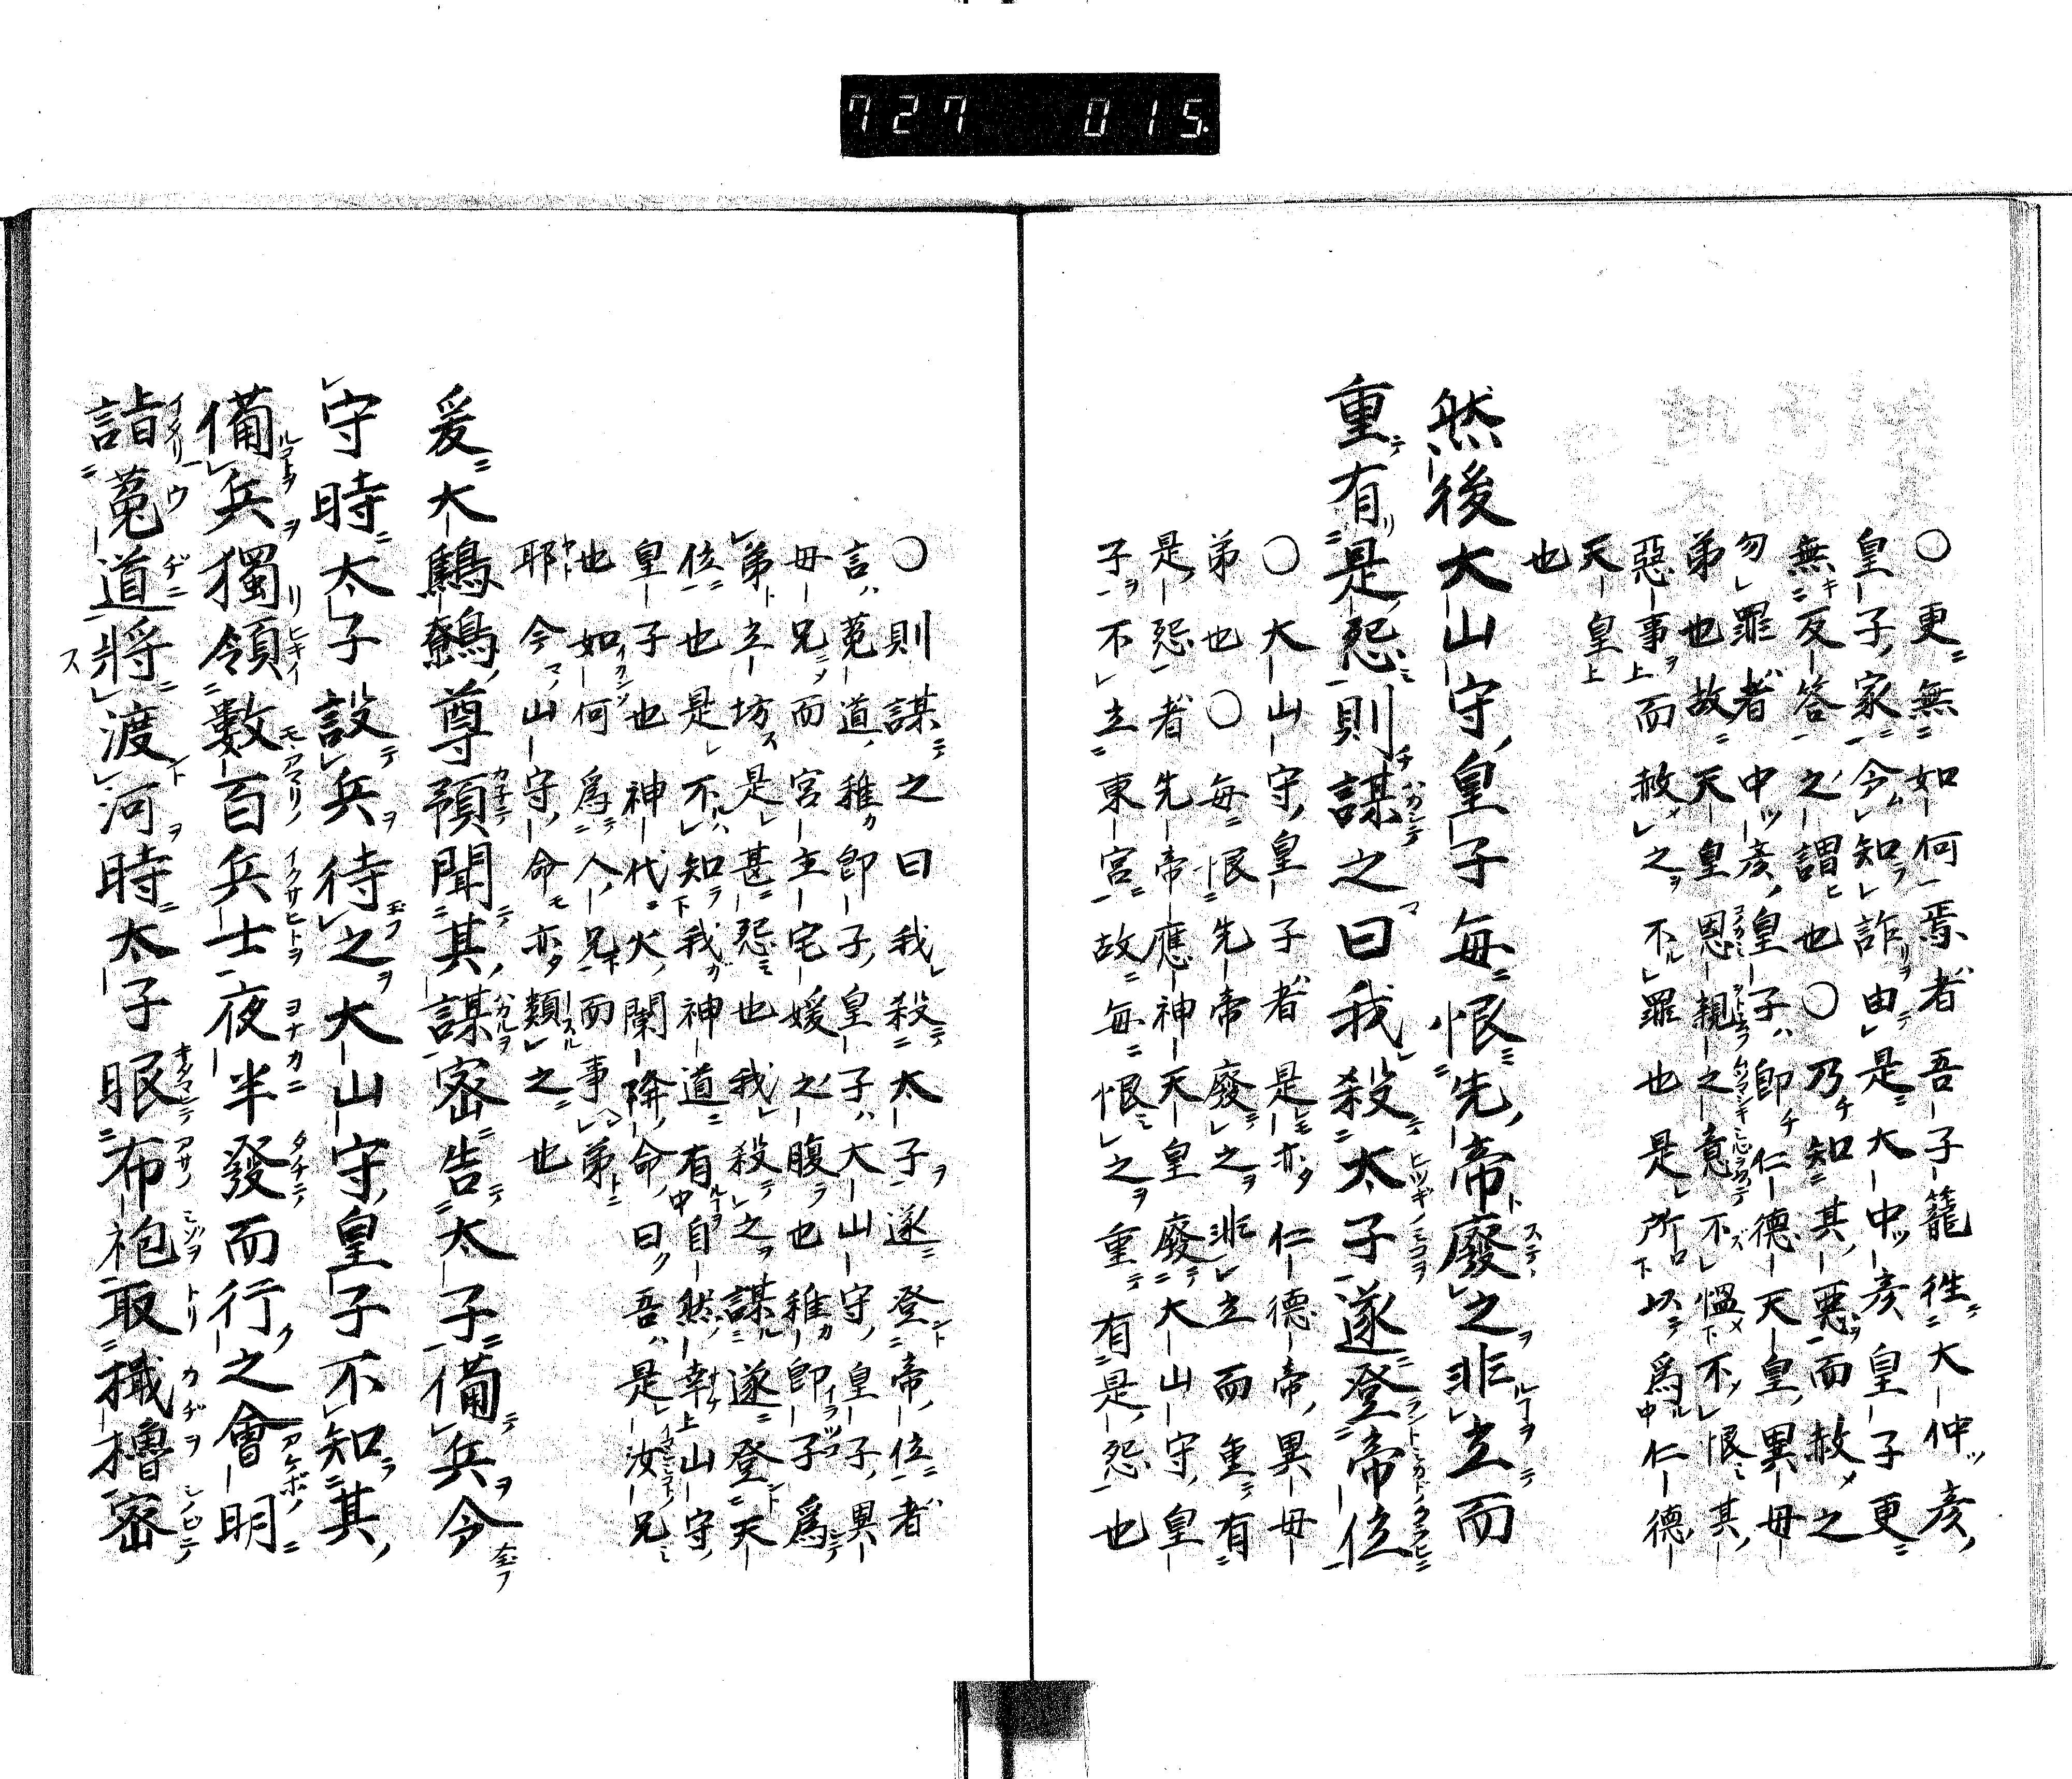 727 015.
○更無如何焉者吾子籠徃大仲彦
皇子家令知詐由是大中彦皇子更
無反答之謂也○乃知其惡而赦之
勿罪者中彦皇子即仁德天皇異母
弟也故天皇恩親之意不慍不恨其
惡事而赦之不罪也是所以爲仁德
天皇
也
然後大山守皇子毎恨先帝廢之非立而
重有是怨則謀之曰我殺太子遂登帝位
○大山守皇子者是亦仁德帝異母
弟也○毎恨先帝廢之非立而重有
是怨者先帝應神天皇廢大山守皇
子不立東宮故毎恨之重有是怨也
○則謀之曰我殺太子遂登帝位者
言菟道稚郎子皇子大山守皇子異
母兄而宮主宅媛之腹也稚郎子爲
弟立坊是甚怨也我殺之謀遂登天
位也是不知我神道有自然幸山守
皇子也神代火闌降命曰吾是汝兄
也如何爲人兄而事弟
耶今山守命亦類之也
爰大鷦鷯尊預聞其謀密告太子備兵令
守時太子設兵待之大山守皇子不知其
備兵獨領數百兵士夜半發而行之會明
詣菟道將渡河時太子服布袍取檝櫓密